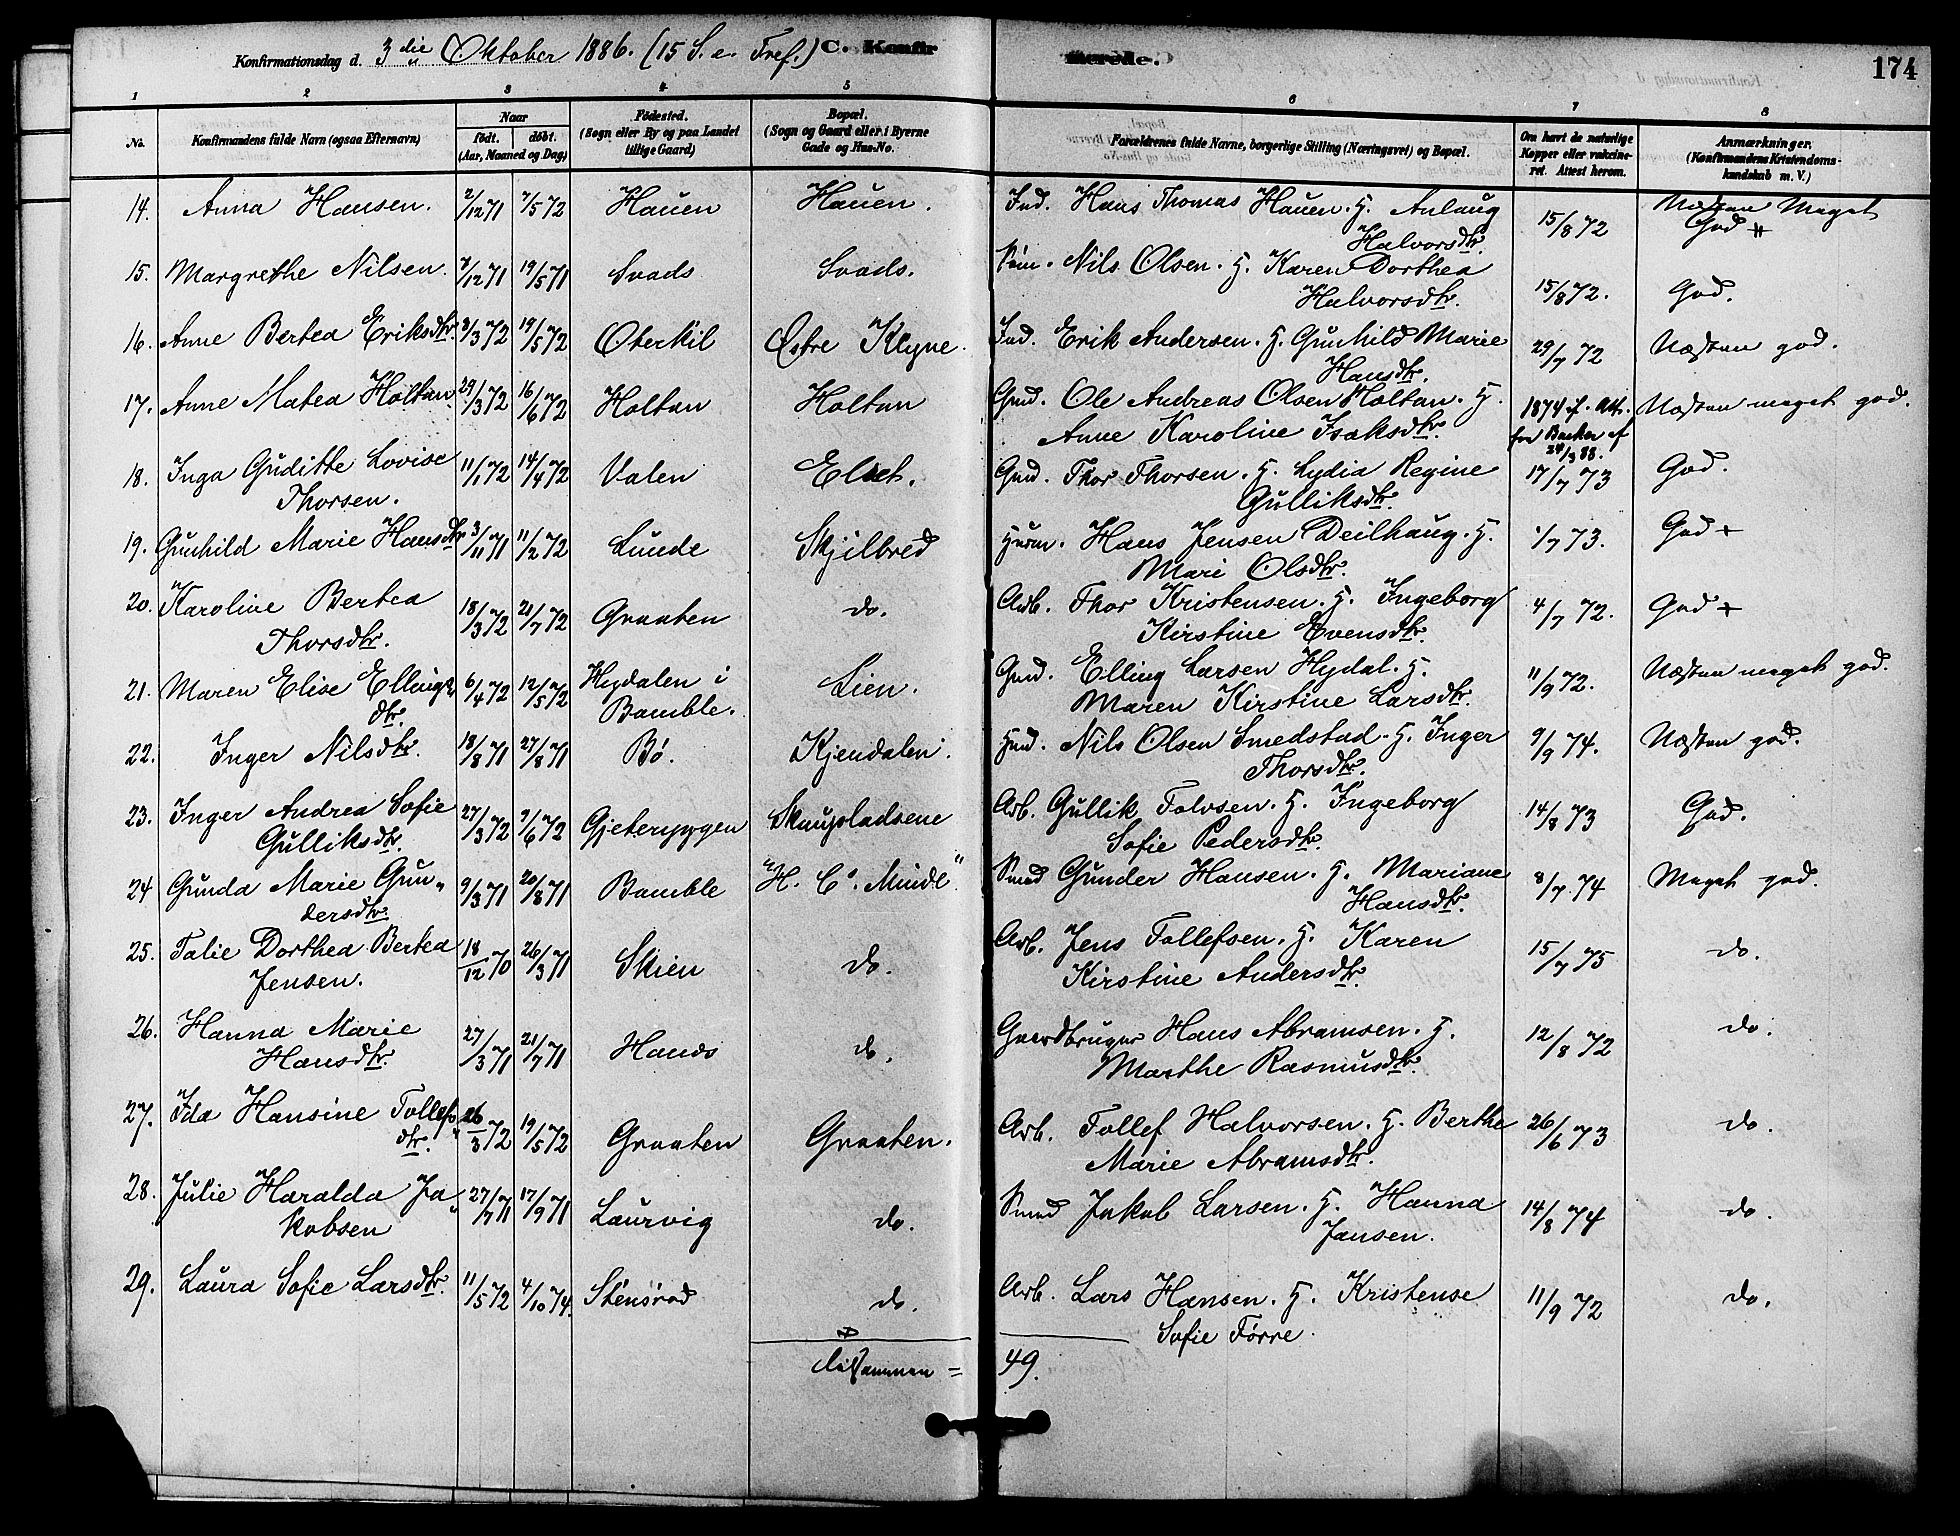 Konfirmationsdag d. 3die Oktober 1886. (15 S. e. Tref.) C. Konfirmerede. 174
1 2 3 4 5 6 7 8
No. Konfirmandens fulde Navn (ogsaa Efternavn) Naar født. døbt. (Aar, Maaned og Dag) Fødested. (Sogn eller By og paa Landet tillige Gaard) Bopæl. (Sogn og Gaard eller i Byerne Gade og Hus-No. Forældrenes fulde Navne, borgerlige Stilling (Næringsvei) og Bopæl. Om havt de naturlige Kopper eller vakcineret. Attest herom. Anmærkninger. (Konfirmandens Kristendomskundskab m. V.)
14. Anna Hansen. 2/12 71 7/5 72 Hauen Hauen. Ind. Hans Thomas Hauen. H. Anlaug Halvorsdtr. 15/8 72 Næsten Meget God
15. Margrethe Nilsen. 7/12 71 19/5 71 Svads Svads. Nils Olsen. H. Karen Dorthea Halvorsdtr. 15/8 72. God.
16. Anne Bertea Eriksdtr. 3/3 72 19/5 72 Oterkil Østre Klyne. Ind. Erik Andersen. H. Gunhild Marie Hansdtr. 29/7 72 Næsten god.
17. Anne Matea Holtan. 29/3 72 16/6 72 Holtan Holtan Gmd. Ole Andreas Olsen Holtan. H. Anne Karoline Isaksdtr. 1874 if. Att. fra Backer af 24/3 88. Næsten meget god.
18. Inga Guditte Lovise Thorsen. 11/1 72 14/4 72 Valen Elset. Gmd. Thor Thorsen. H. Lydia Regine Gulliksdtr. 17/7 73 God.
19. Gunhild Marie Hansdtr 3/11 71 11/2 72 Lunde Skjilbred Husm. Hans Jensen Deilhaug. H. Mari Olsdtr. 1/7 73. God +
20. Karoline Bertea Thorsdtr. 18/3 72 21/7 72 Graaten do. Arb. Thor Kristensen. H. Ingeborg Kirstine Evensdtr. 4/7 72. God +
21. Maren Elise Ellings dtr. 6/4 72 12/5 72 Hydalen i Bamble. Lien. Gmd. Elling Larsen Hydal. H. Maren Kirstine Larsdtr. 11/9 72. Næsten meget god.
22. Inger Nilsdtr. 18/8 71 27/8 71 Bø. Kjendalen. Nils Olsen Smedstad. H. Inger Thorsdtr. 9/9 74. Næsten god.
23. Inger Andrea Sofie Gulliksdtr. 27/3 72 9/6 72 Gjeteryggen Skaupladsene Arb. Gullik Tolvsen. H. Ingeborg Sofie Pedersdtr. 14/8 73 God.
24 Gunda Marie Gundersdtr. 9/3 71 20/8 71 Bamble "H. Cs. Minde". Smed Gunder Hansen. H. Mariane Hansdtr. 8/7 74 Meget god.
25. Talie Dorthea Bertea Jensen. 18/12 70 26/3 71 Skien do. Arb. Jens Tollefsen. H. Karen Kirstine Andersdtr. 15/7 75 do.
26. Hanna Marie Hansdtr. 27/3 71 21/7 71 Hauds do. Gaardbruger Hans Abramsen. H. Marthe Rasmusdtr. 12/8 72 do.
27. Ida Hansine Tollefsdtr. 26/3 72 19/5 72 Graaten Graaten. Arb. Tollef Halvorsen. H. Berthe Marie Abramsdtr. 26/6 73 do.
28. Julie Haralda Jakobsen 27/7 71 17/9 71 Laurvig do. Smed Jakob Larsen. H. Hanna Jansen. 14/8 74 do.
29. Laura Sofie Larsdtr. 11/5 72 4/10 74. Stensrød do. Arb. Lars Hansen. H. Kristense Sofie Tørre. 11/9 72 do.
tilsammen = 49.